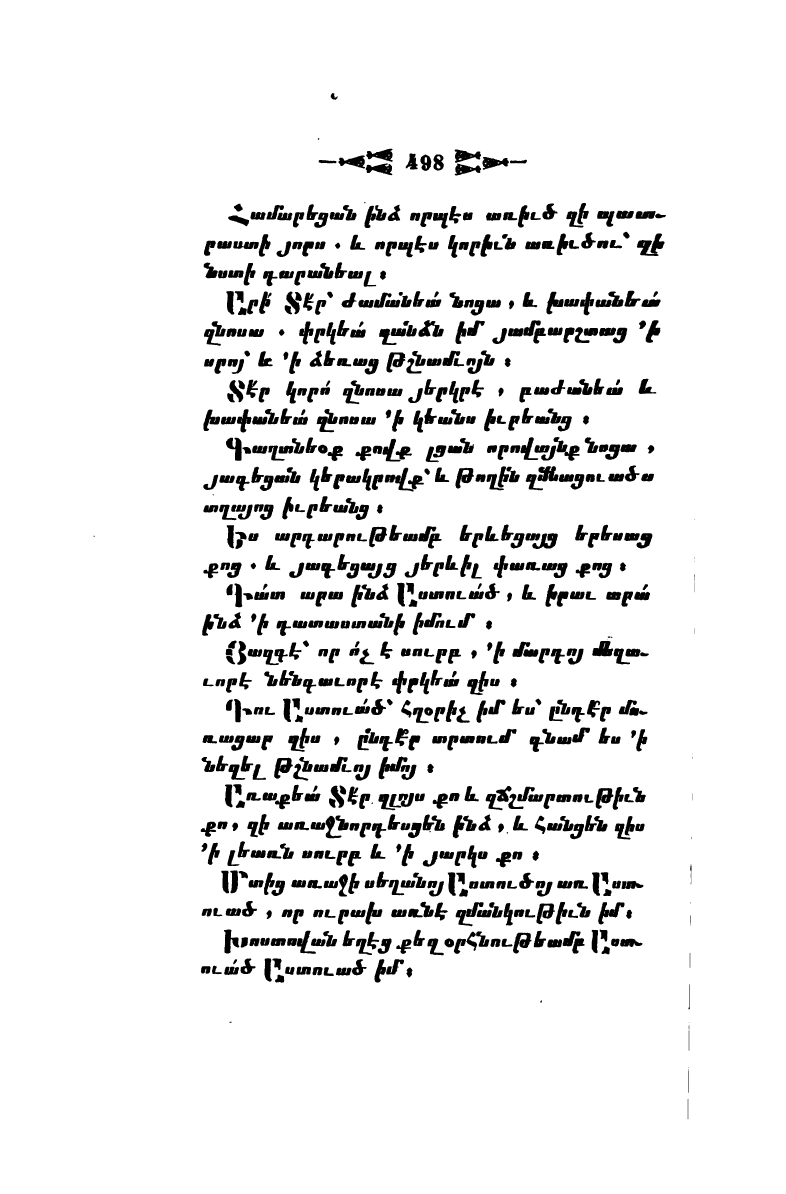 498
Համարեցան ինձ որպէս առիւծ զի պատ-
րաստի յորս . և որպէս կորիւն առիւծու՝ զի
նստի դարանեալ ։
Արի՛ Տէր՝ ժամանեա՛ նոցա , և խափանեա՛
զնոսա . փրկեա՛ զանձն իմ յամբարշտաց ՚ի
սրոյ՝ և ՚ի ձեռաց թշնամւոյն ։
Տէր կորո՛ զնոսա յերկրէ , բաժանեա՛ և
խափանեա՛ զնոսա ՚ի կեանս իւրեանց ։
Գաղտնեօք քովք լցան որովայնք նոցա ,
յագեցան կերակրովք՝ և թողին զմնացուածս
տղայոց իւրեանց ։
Ես արդարութեամբ երևեցայց երեսաց
քոց . և յագեցայց յերևիլ փառաց քոց ։
Դա՛տ արա ինձ Աստուա՛ծ , և իրաւ արա՛
ինձ ՚ի դատաստանի իմում ։
Յազգէ՝ որ ո՛չ է սուրբ , ՚ի մարդոյ մեղա-
ւորէ նենգաւորէ փրկեա՛ զիս ։
Դու Աստուած՝ հզօրիչ իմ ես՝ ընդէ՞ր մո-
ռացար զիս , ընդէ՞ր տրտում գնամ ես ՚ի
նեղել թշնամւոյ իմոյ ։
Առաքեա՛ Տէր զլոյս քո և զճշմարտութիւն
քո , զի առաջնորդեսցեն ինձ , և հանցեն զիս
՚ի լեառն սուրբ և ՚ի յարկս քո ։
Մտից առաջի սեղանոյ Աստուծոյ առ Աստ-
ուած , որ ուրախ առնէ զմանկութիւն իմ ։
Խոստովան եղէց քեզ օրհնութեամբ Աստ-
ուա՛ծ Աստուած իմ ։